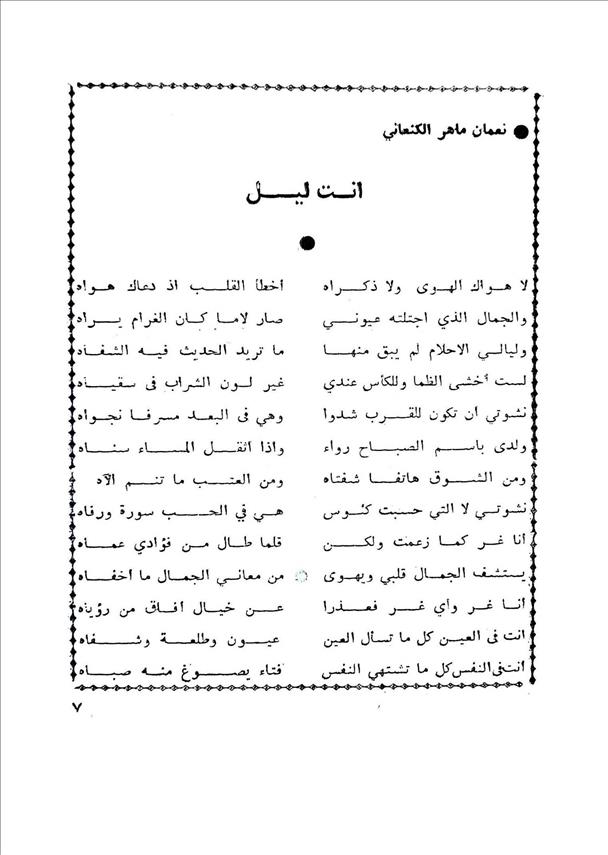 نعمان ماهر الكنعاني
انت ليل
لا هواك الهوى ولا ذكراه أخطأ القلب اذ دعاك هواه
والجمال الذي اجتلته عيوني صار لاما كان الغرام يراه
وليالي الاحلام لم يبق منها ما تريد الحديث فيه الشفاه
لست أخشى الظما وللكأس عندي غير لون الشراب فى سقياه
نشوتي ان تكون للقرب شدوا وهي فى البعد مسرفا نجواه
ولدى باسم الصباح رواء واذا اثقل المساء سناه
ومن الشوق هاتفا شفتاه ومن العتب ما تنم الآه
نشوتي لا التي حسبت كئوس هي في الحب سورة ورفاه
أنا غر كما زعمت ولكن قلما طال من فؤادي عماه
يستشف الجمال قلبي ويهوى من معاني الجمال ما أخفاه
أنا غر وأي غر فعذرا عن خيال أفاق من رؤياه
انت فى العين كل ما تسأل العين عيون وطلعة وشفاه
انت فى النفس كل ما تشتهي النفس فتاء يصوغ منه صباه
٧